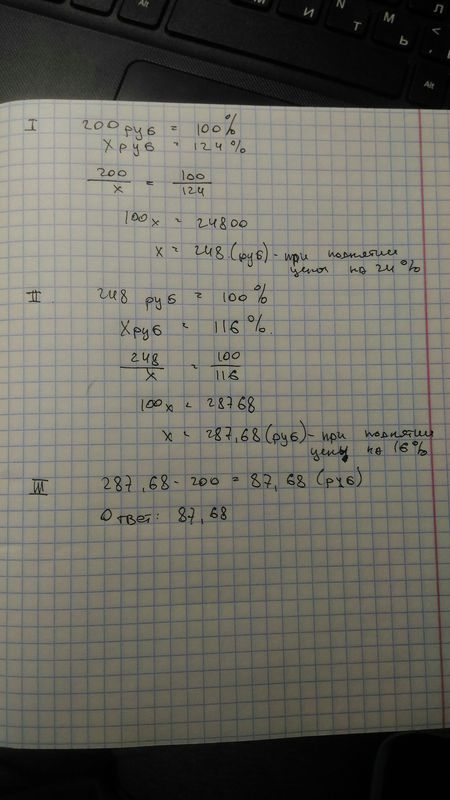 I 200 руб = 100%
X руб = 124%
200/x = 100/124
100x = 24800
x = 248 (руб) - при поднятии
цены на 24%
II 248 руб = 100%
X руб = 116%.
248/x = 100/116
100x = 28768
x = 287,68 (руб) - при поднятии
цены на 16%
III 287,68 - 200 = 87,68 (руб)
Ответ: 87,68